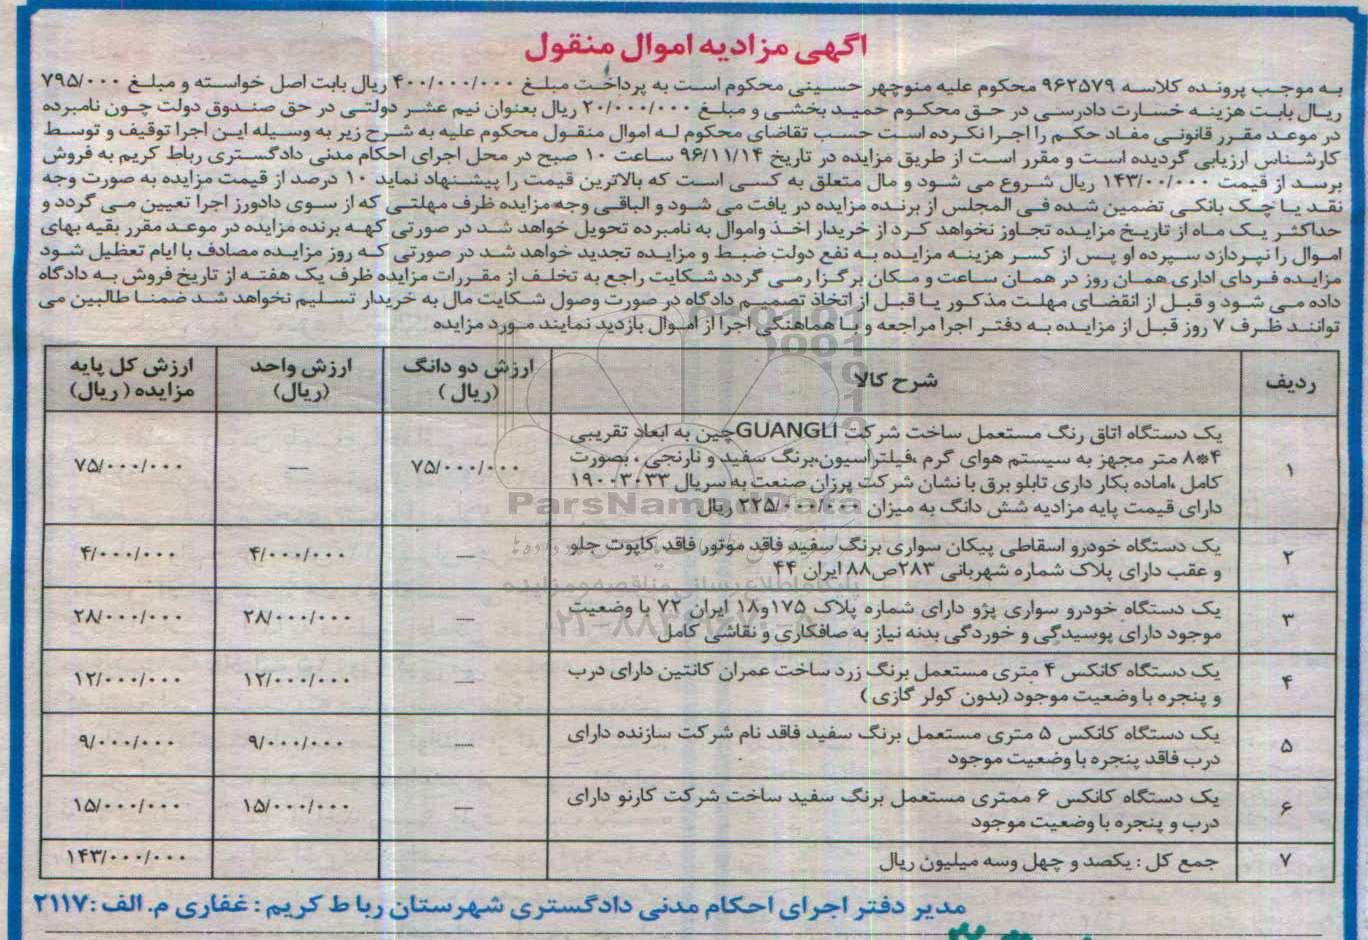 اگهی مزادیه اموال منقول
به موجب پرونده کلاسه ۹۶۲۵۷۹ محکوم علیه منوچهر حسینی محکوم است به پرداخت مبلغ ۴۰۰/۰۰۰/۰۰۰ ریال بابت اصل خواسته و مبلغ ۷۹۵/۰۰۰
ریال بابت هزینه خسارت دادرسی در حق محکوم حمید بخشی و مبلغ ۲۰/۰۰۰/۰۰۰ ریال بعنوان نیم عشر دولتی در حق صندوق دولت چون نامبرده
در موعد مقرر قانونی مفاد حکم را اجرا نکرده است حسب تقاضای محکوم له اموال منقول محکوم علیه به شرح زیر به وسیله این اجرا توقیف و توسط
کارشناس ارزیابی گردیده است و مقرر است از طریق مزایده در تاریخ ۹۶/۱۱/۱۴ ساعت ۱۰ صبح در محل اجرای احکام مدنی دادگستری رباط کریم به فروش
برسد از قیمت ۱۴۳/۰۰/۰۰۰ ریال شروع می شود و مال متعلق به کسی است که بالاترین قیمت را پیشنهاد نماید ۱۰ درصد از قیمت مزایده به صورت وجه
نقد یا چک بانکی تضمین شده فی المجلس از برنده مزایده در یافت می شود و الباقی وجه مزایده ظرف مهلتی که از سوی دادورز اجرا تعیین می گردد و
حداکثر یک ماه از تاریخ مزایده تجاوز نخواهد کرد از خریدار اخذ واموال به نامبرده تحویل خواهد شد در صورتی کهه برنده مزایده در موعد مقرر بقیه بهای
اموال را نپردازد سپرده او پس از کسر هزینه مزایده به نفع دولت ضبط و مزایده تجدید خواهد شد در صورتی که روز مزایده مصادف با ایام تعطیل شود
مزایده فردای اداری همان روز در همان ساعت و مکان برگزار می گردد شکایت راجع به تخلف از مقررات مزایده ظرف یک هفته از تاریخ فروش به دادگاه
داده می شود و قبل از انقضای مهلت مذکور یا قبل از اتخاذ تصمیم دادگاه در صورت وصول شکایت مال به خریدار تسلیم نخواهد شد ضمنا طالبین می
توانند ظرف ۷ روز قبل از مزایده به دفتر اجرا مراجعه و با هماهنگی اجرا از اموال بازدید نمایند مورد مزایده
ردیف شرح کالا ارزش دو دانگ (ریال) ارزش واحد (ریال) ارزش کل پایه مزایده (ریال)
یک دستگاه اتاق رنگ مستعمل ساخت شرکت GUANGLIچین به ابعاد تقریبی
۴*۸ متر مجهز به سیستم هوای گرم ،فیلتراسیون،برنگ سفید و نارنجی ، بصورت
۱ کامل ،اماده بکار داری تابلو برق با نشان شرکت پرزان صنعت به سریال ۱۹۰۰۳۰۳۳ ۷۵/۰۰۰/۰۰۰ — ۷۵/۰۰۰/۰۰۰
دارای قیمت پایه مزادیه شش دانگ به میزان ۲۲۵/۰۰۰/۰۰۰ ریال
۲ یک دستگاه خودرو اسقاطی پیکان سواری برنگ سفید فاقد موتور فاقد کاپوت جلو — ۴/۰۰۰/۰۰۰ ۴/۰۰۰/۰۰۰
و عقب دارای پلاک شماره شهربانی ۲۸۳ص۸۸ ایران ۴۴
۳ یک دستگاه خودرو سواری پژو دارای شماره پلاک ۱۷۵و۱۸ ایران ۷۲ با وضعیت — ۲۸/۰۰۰/۰۰۰ ۲۸/۰۰۰/۰۰۰
موجود دارای پوسیدگی و خوردگی بدنه نیاز به صافکاری و نقاشی کامل
۴ یک دستگاه کانکس ۴ متری مستعمل برنگ زرد ساخت عمران کانتین دارای درب — ۱۲/۰۰۰/۰۰۰ ۱۲/۰۰۰/۰۰۰
و پنجره با وضعیت موجود (بدون کولر گازی)
۵ یک دستگاه کانکس ۵ متری مستعمل برنگ سفید فاقد نام شرکت سازنده دارای — ۹/۰۰۰/۰۰۰ ۹/۰۰۰/۰۰۰
درب فاقد پنجره با وضعیت موجود
۶ یک دستگاه کانکس ۶ ممتری مستعمل برنگ سفید ساخت شرکت کارنو دارای — ۱۵/۰۰۰/۰۰۰ ۱۵/۰۰۰/۰۰۰
درب و پنجره با وضعیت موجود
۷ جمع کل : یکصد و چهل وسه میلیون ریال ۱۴۳/۰۰۰/۰۰۰
مدیر دفتر اجرای احکام مدنی دادگستری شهرستان رباط کریم : غفاری م. الف :۲۱۱۷
ParsNamadData